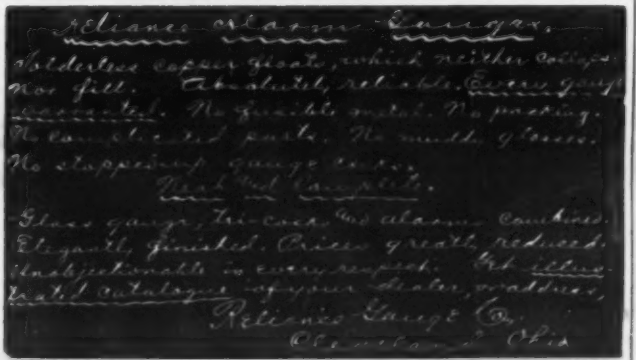 Reliance Alarm Gauges.
Solderless copper floats, which neither collapse
nor fill. Absolutely reliable. Every gauge
warranted. No fusible metal. No packing.
No complicated parts. No muddy glasses.
No stopped-up gauge cocks.
Neat and Complete.
Glass gauge, tri-cocks and alarm combined.
Elegantly finished. Prices greatly reduced.
Unobjectionable in every respect. Get illus-
trated catalogue of your dealer, or address,
Reliance Gauge Co.
Cleveland Ohio